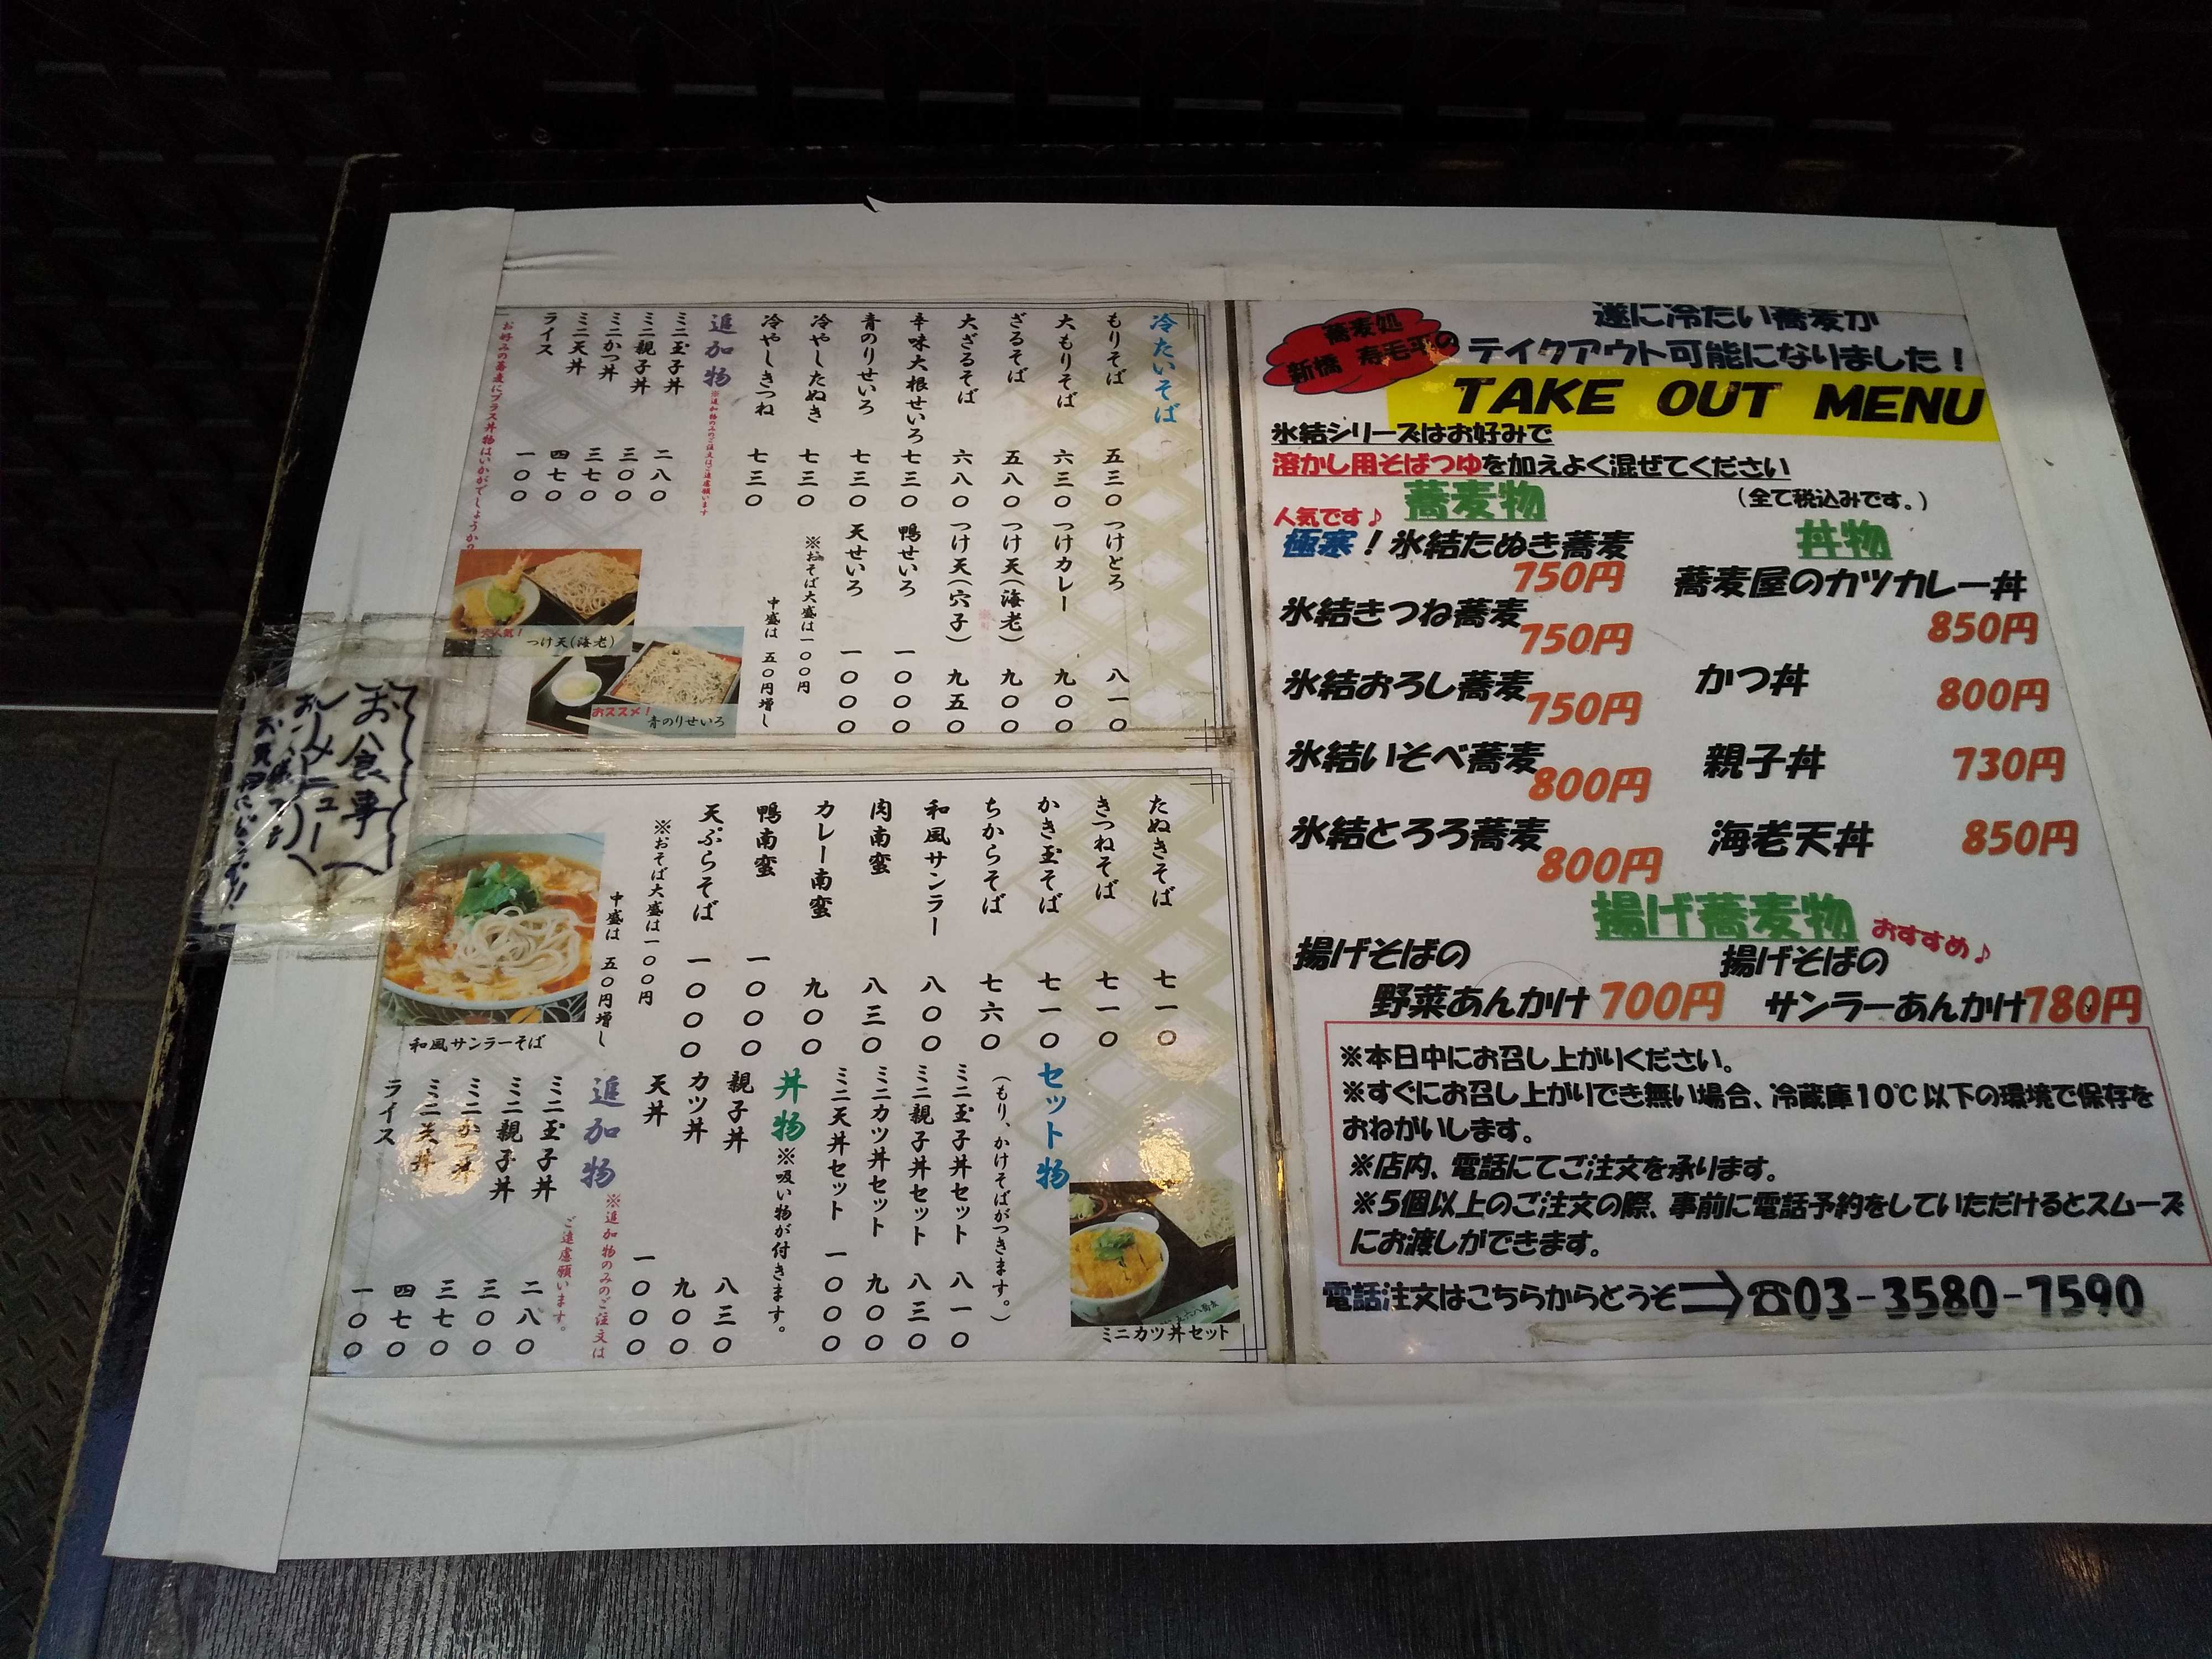 冷たいそば
もりそば 五三〇
大もりそば 六三〇
ざるそば 五八〇
大ざるそば 六八〇
辛味大根せいろ 七三〇
青のりせいろ 七三〇
冷やしたぬき 七三〇
冷やしきつね 七三〇
つけとろ 八一〇
つけカレー 九〇〇
つけ天(海老) 九〇〇
つけ天(穴子) 九五〇
鴨せいろ 一〇〇〇
天せいろ 一〇〇〇
※おそば大盛は一〇〇円
中盛は 五〇円増し
追加物
※追加物のみのご注文はご遠慮願います
ミニ玉子丼 二八〇
ミニ親子丼 三〇〇
ミニかつ丼 三七〇
ミニ天丼 四七〇
ライス 一〇〇
お好みの蕎麦にプラス丼物はいかがでしょうか?
つけ天(海老)
おススメ!
青のりせいろ
お食事
メニュー
たぬきそば 七一〇
きつねそば 七一〇
かき玉そば 七一〇
ちからそば 七六〇
和風サンラー 八〇〇
肉南蛮 八三〇
カレー南蛮 九〇〇
鴨南蛮 一〇〇〇
天ぷらそば 一〇〇〇
※おそば大盛は一〇〇円
中盛は 五〇円増し
和風サンラーそば
セット物
(もり、かけそばがつきます。)
ミニ玉子丼セット 八一〇
ミニ親子丼セット 八三〇
ミニカツ丼セット 九〇〇
ミニ天丼セット 一〇〇〇
丼物 ※吸い物が付きます。
親子丼 八三〇
カツ丼 九〇〇
天丼 一〇〇〇
追加物
※追加物のみのご注文は
ご遠慮願います。
ミニ玉子丼 二八〇
ミニ親子丼 三〇〇
ミニかつ丼 三七〇
ミニ天丼 四七〇
ライス 一〇〇
ミニカツ丼セット
蕎麦処
新橋 寿毛平の
遂に冷たい蕎麦が
テイクアウト可能になりました!
TAKE OUT MENU
氷結シリーズはお好みで
溶かし用そばつゆを加えよく混ぜてください
(全て税込みです。)
蕎麦物
人気です♪
極寒!氷結たぬき蕎麦
750円
氷結きつね蕎麦
750円
氷結おろし蕎麦
750円
氷結いそべ蕎麦
800円
氷結とろろ蕎麦
800円
丼物
蕎麦屋のカツカレー丼
850円
かつ丼 800円
親子丼 730円
海老天丼 850円
揚げ蕎麦物
おすすめ♪
揚げそばの
野菜あんかけ 700円
揚げそばの
サンラーあんかけ 780円
※本日中にお召し上がりください。
※すぐにお召し上がりでき無い場合、冷蔵庫10℃以下の環境で保存を
おねがいします。
※店内、電話にてご注文を承ります。
※5個以上のご注文の際、事前に電話予約をしていただけるとスムーズ
にお渡しができます。
電話注文はこちらからどうぞ⇒☎03-3580-7590